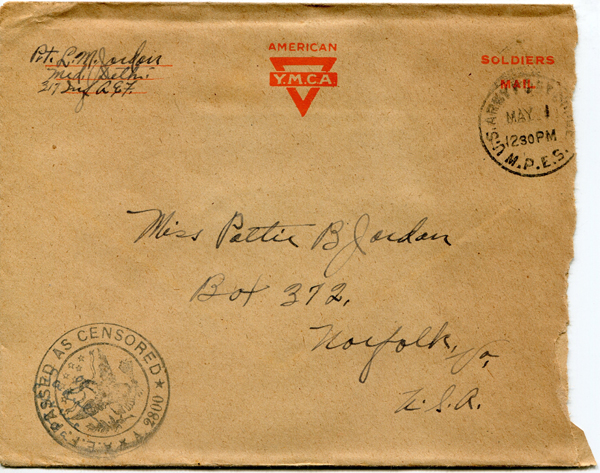 Pvt. L. M. Jordan
Med. Detn.
317 Inf. A.E.F.
AMERICAN
Y.M.C.A.
SOLDIERS
MAIL
U.S. ARMY
MAY 1
1230PM
M.P.E.S.
Miss Pattie B Jordan
Box 372,
Norfolk, Va.
U.S.A.
A.E.F. PASSED AS CENSORED
2800